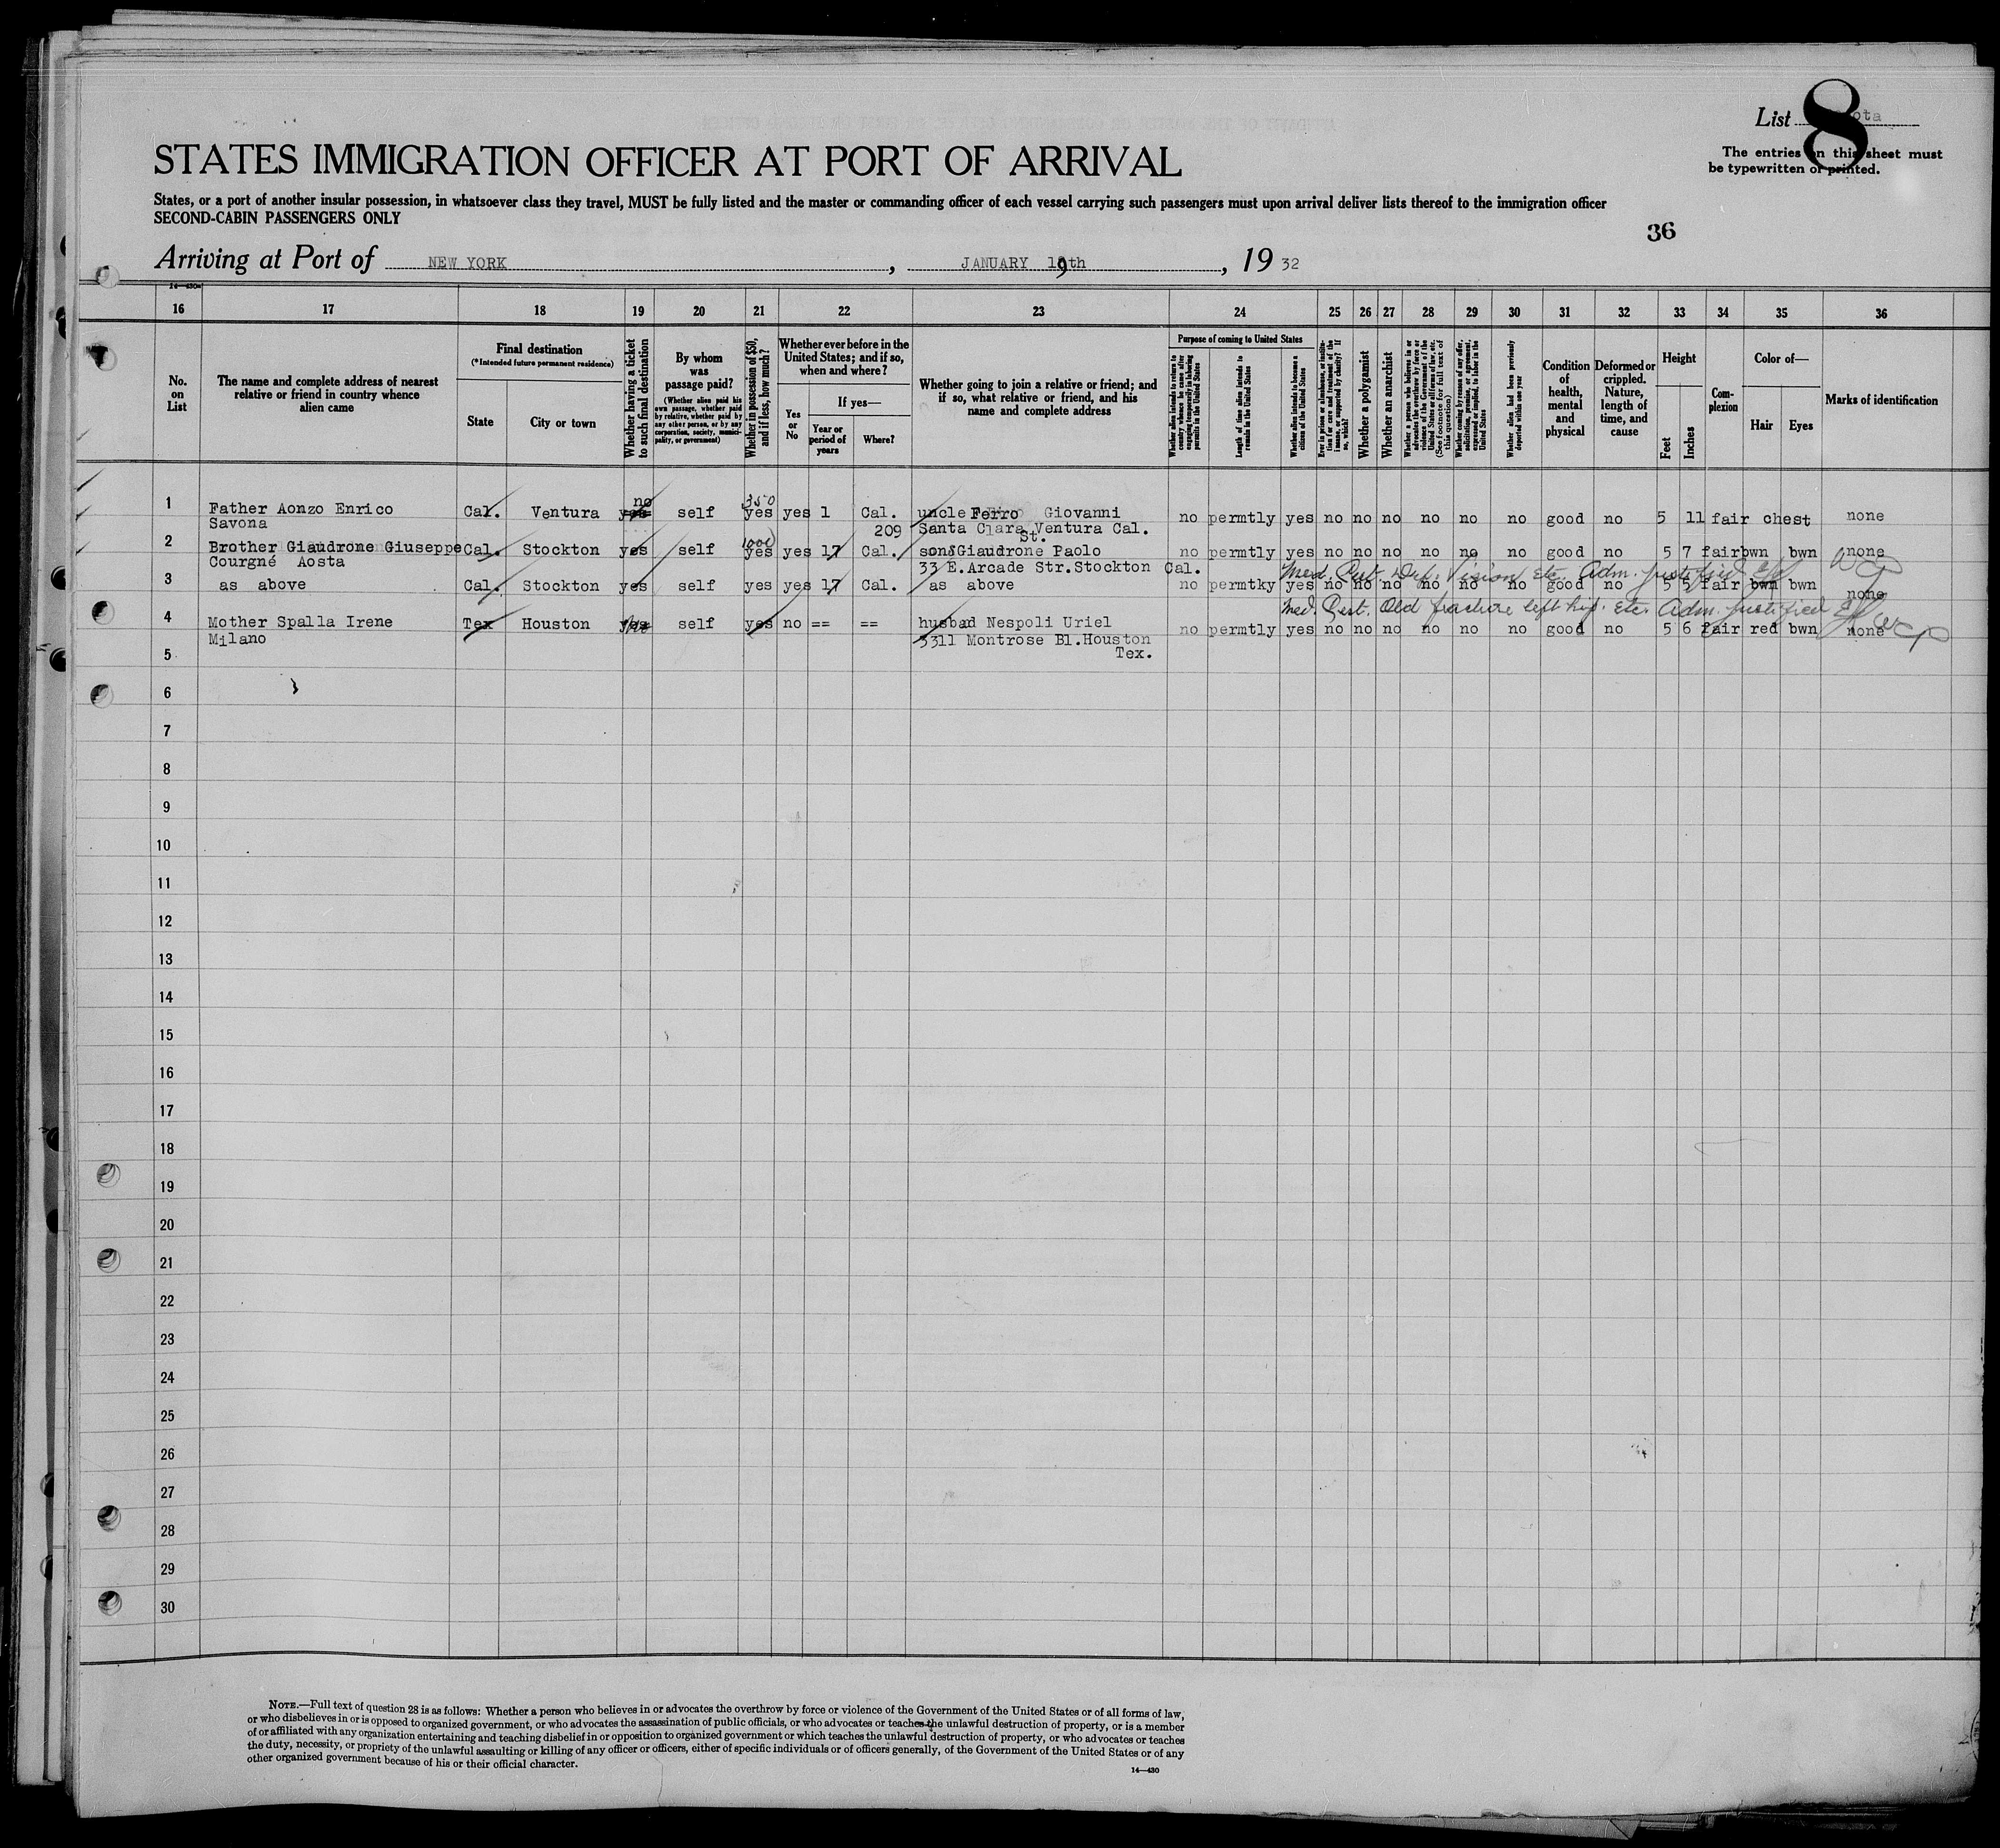 List 8 ota
The entries on this sheet must
be typewritten or printed.
STATES IMMIGRATION OFFICER AT PORT OF ARRIVAL
States, or a port of another insular possession, in whatsoever class they travel, MUST be fully listed and the master or commanding officer of each vessel carrying such passengers must upon arrival deliver lists thereof to the immigration officer
SECOND-CABIN PASSENGERS ONLY
36
Arriving at Port of NEW YORK , JANUARY 19th , 19 32
14—430
16 17 18 19 20 21 22 23 24 25 26 27 28 29 30 31 32 33 34 35 36
No. on List
The name and complete address of nearest relative or friend in country whence alien came
Final destination
(*Intended future permanent residence)
State
City or town
Whether having a ticket to such final destination
By whom was passage paid?
(Whether alien paid his own passage, whether paid by relative, whether paid by any other person, or by any corporation, society, municipality, or government)
Whether in possession of $50, and if less, how much?
Whether ever before in the United States; and if so, when and where?
Yes or No
If yes—
Year or period of years
Where?
Whether going to join a relative or friend; and if so, what relative or friend, and his name and complete address
Purpose of coming to United States
Whether alien intends to return to country whence he came after engaging temporarily in laboring pursuits in the United States
Length of time alien intends to remain in the United States
Whether alien intends to become a citizen of the United States
Ever in prison or almshouse, or institution for care and treatment of the insane, or supported by charity? If so, which?
Whether a polygamist
Whether an anarchist
Whether a person who believes in or advocates the overthrow by force or violence of the Government of the United States or all forms of law, etc. (See footnote for full text of this question)
Whether coming by reason of any offer, solicitation, promise, or agreement, expressed or implied, to labor in the United States
Whether alien had been previously deported within one year
Condition of health, mental and physical
Deformed or crippled. Nature, length of time, and cause
Height
Feet
Inches
Complexion
Color of—
Hair
Eyes
Marks of identification
no 350
1 Father Aonzo Enrico Cal. Ventura yes self yes yes 1 Cal. uncle Ferro Giovanni no permtly yes no no no no no no good no 5 11 fair chest none
Savona 209 Santa Clara Ventura Cal.
St.
1000
2 Brother Giaudrone Giuseppe Cal. Stockton yes self yes yes 17 Cal. sons Giaudrone Paolo no permtly yes no no no no no no good no 5 7 fair bwn bwn none
Courgné Aosta 33 E.Arcade Str.Stockton Cal.
Med. Cert. Def. Vision Etc. Adm. justified
3 as above Cal. Stockton yes self yes yes 17 Cal. as above no permtky yes no no no no no no good no 5 5 fair bwn bwn none
Med. Cert. Old fracture left hip. Etc. Adm. justified
4 Mother Spalla Irene Tex Houston yes self yes no == == husbad Nespoli Uriel no permtly yes no no no no no no good no 5 6 fair red bwn none
Milano 3311 Montrose Bl.Houston
Tex.
5
6
7
8
9
10
11
12
13
14
15
16
17
18
19
20
21
22
23
24
25
26
27
28
29
30
NOTE.—Full text of question 28 is as follows: Whether a person who believes in or advocates the overthrow by force or violence of the Government of the United States or of all forms of law,
or who disbelieves in or is opposed to organized government, or who advocates the assassination of public officials, or who advocates or teaches the unlawful destruction of property, or is a member
of or affiliated with any organization entertaining and teaching disbelief in or opposition to organized government or which teaches the unlawful destruction of property, or who advocates or teaches
the duty, necessity, or propriety of the unlawful assaulting or killing of any officer or officers, either of specific individuals or of officers generally, of the Government of the United States or of any
other organized government because of his or their official character.
14—430